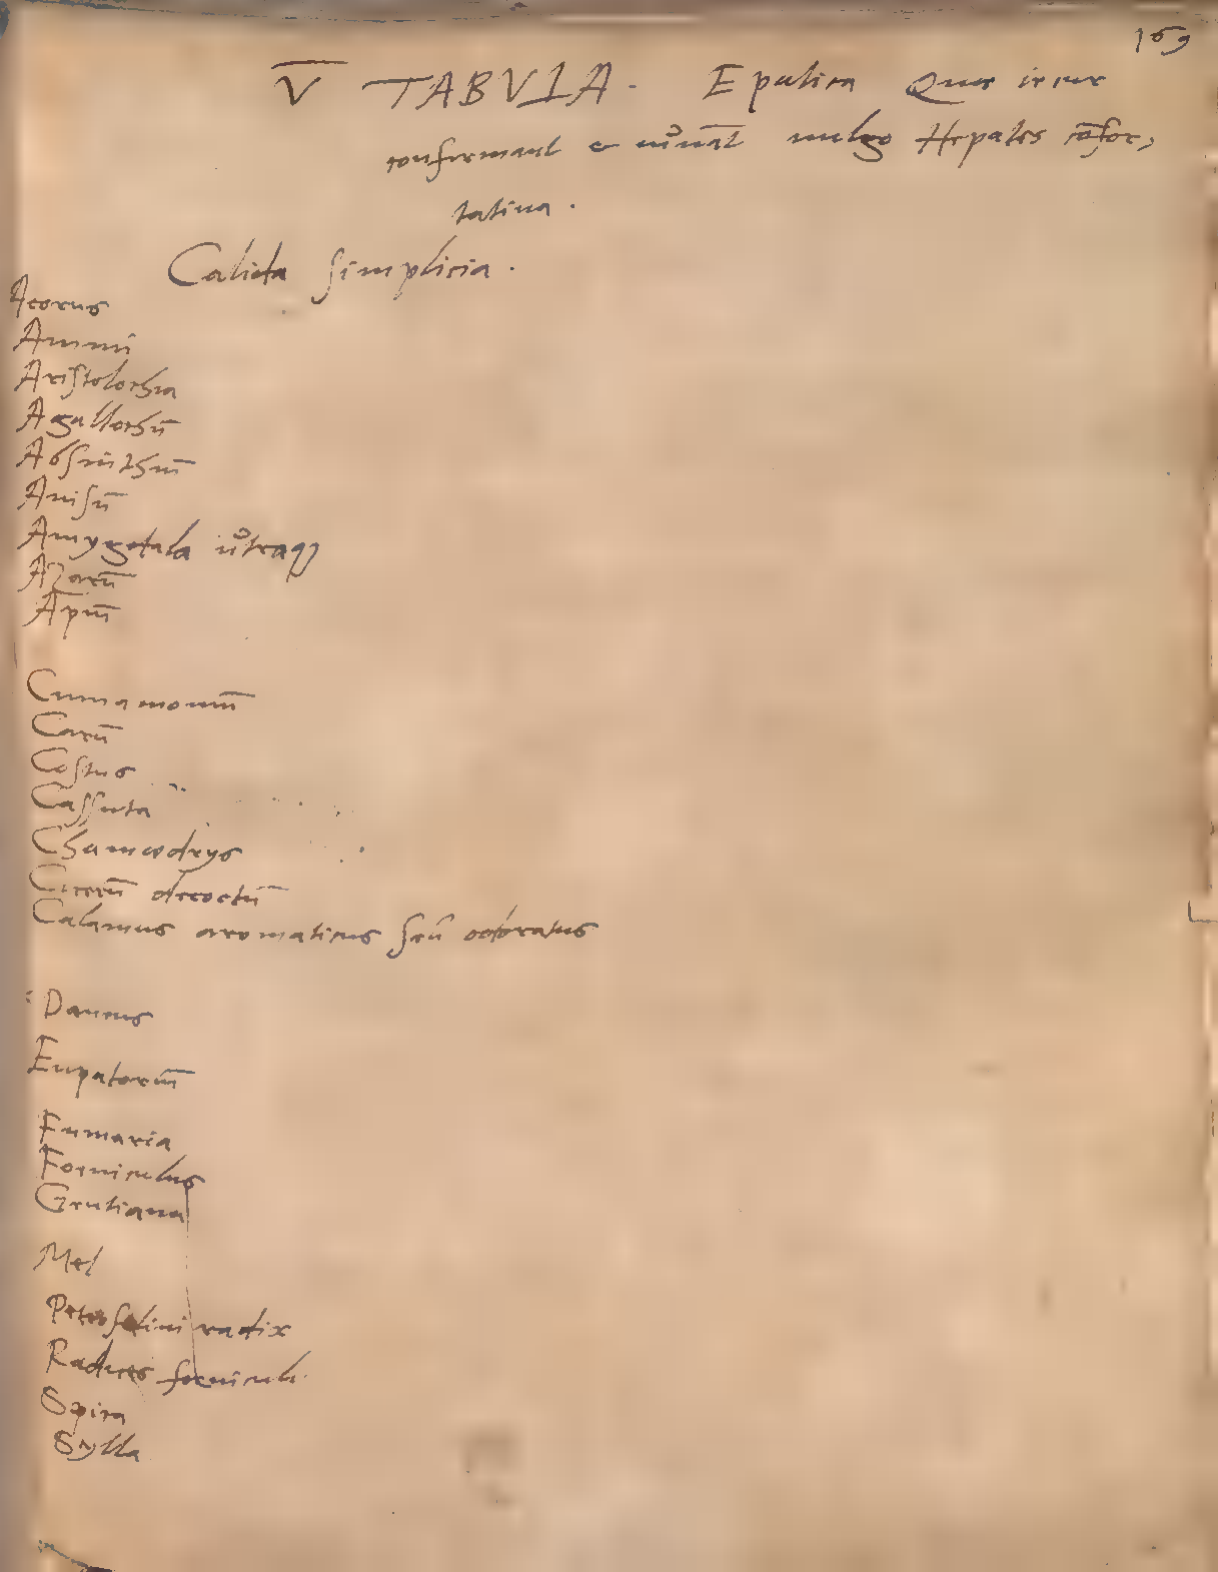 169
V TABVLA. Epatica Quae iecur
confirmant & iuuāt uulgo Hepatis cōfor,
tatiua.
Calida simplicia.
Acorus
Ammi
Aristolochia
Agallochū
Absinthiū
Anisū
Amygdala utraq3
Azarū
Apiū
Cinnamomū
Carū
Costus
Cassuta
Chamædrys
Cicerū decoctū
Calamus aromaticus seu odoratus
Daucus
Eupatoriū
Fumaria
Foeniculus
Gentiana
Mel
Petroselini radix
Radices foeniculi
Spica
Scylla